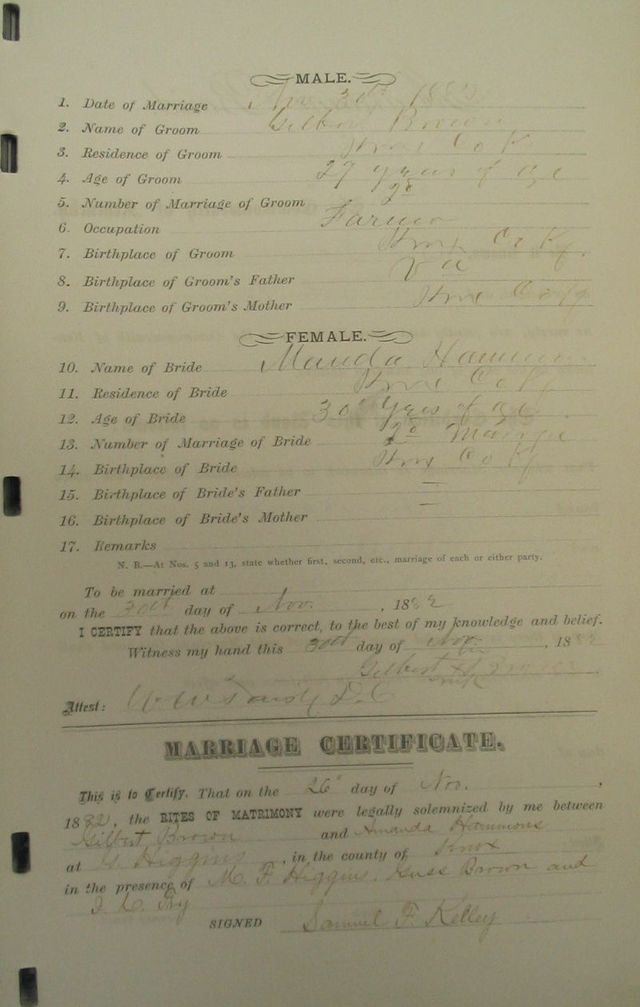 MALE.
1. Date of Marriage Nov 30th 1882
2. Name of Groom Gilbert Brown
3. Residence of Groom Knox Co Ky
4. Age of Groom 27 years of age
5. Number of Marriage of Groom 2d
6. Occupation Farmer
7. Birthplace of Groom Knox Co Ky.
8. Birthplace of Groom's Father Va
9. Birthplace of Groom's Mother Knox Co Ky
FEMALE.
10. Name of Bride Manda Hammons
11. Residence of Bride Knox Co Ky
12. Age of Bride 30 Years of age
13. Number of Marriage of Bride 2d Marriage
14. Birthplace of Bride Knox Co Ky
15. Birthplace of Bride's Father –
16. Birthplace of Bride's Mother –
17. Remarks
N. B.—At Nos. 5 and 13, state whether first, second, etc., marriage of each or either party.
To be married at
on the 30th day of Nov. , 1882
I CERTIFY that the above is correct, to the best of my knowledge and belief.
Witness my hand this 30th day of Nov. , 1882
Gilbert X Brown
mrk
Attest: D.C
MARRIAGE CERTIFICATE.
This is to Certify, That on the 26th day of Nov. ,
1882, the RITES OF MATRIMONY were legally solemnized by me between
Gilbert Brown and Amanda Hammons
at G. Higgins , in the county of Knox
in the presence of M. F. Higgins. Brown and
SIGNED Samuel F. Kelley